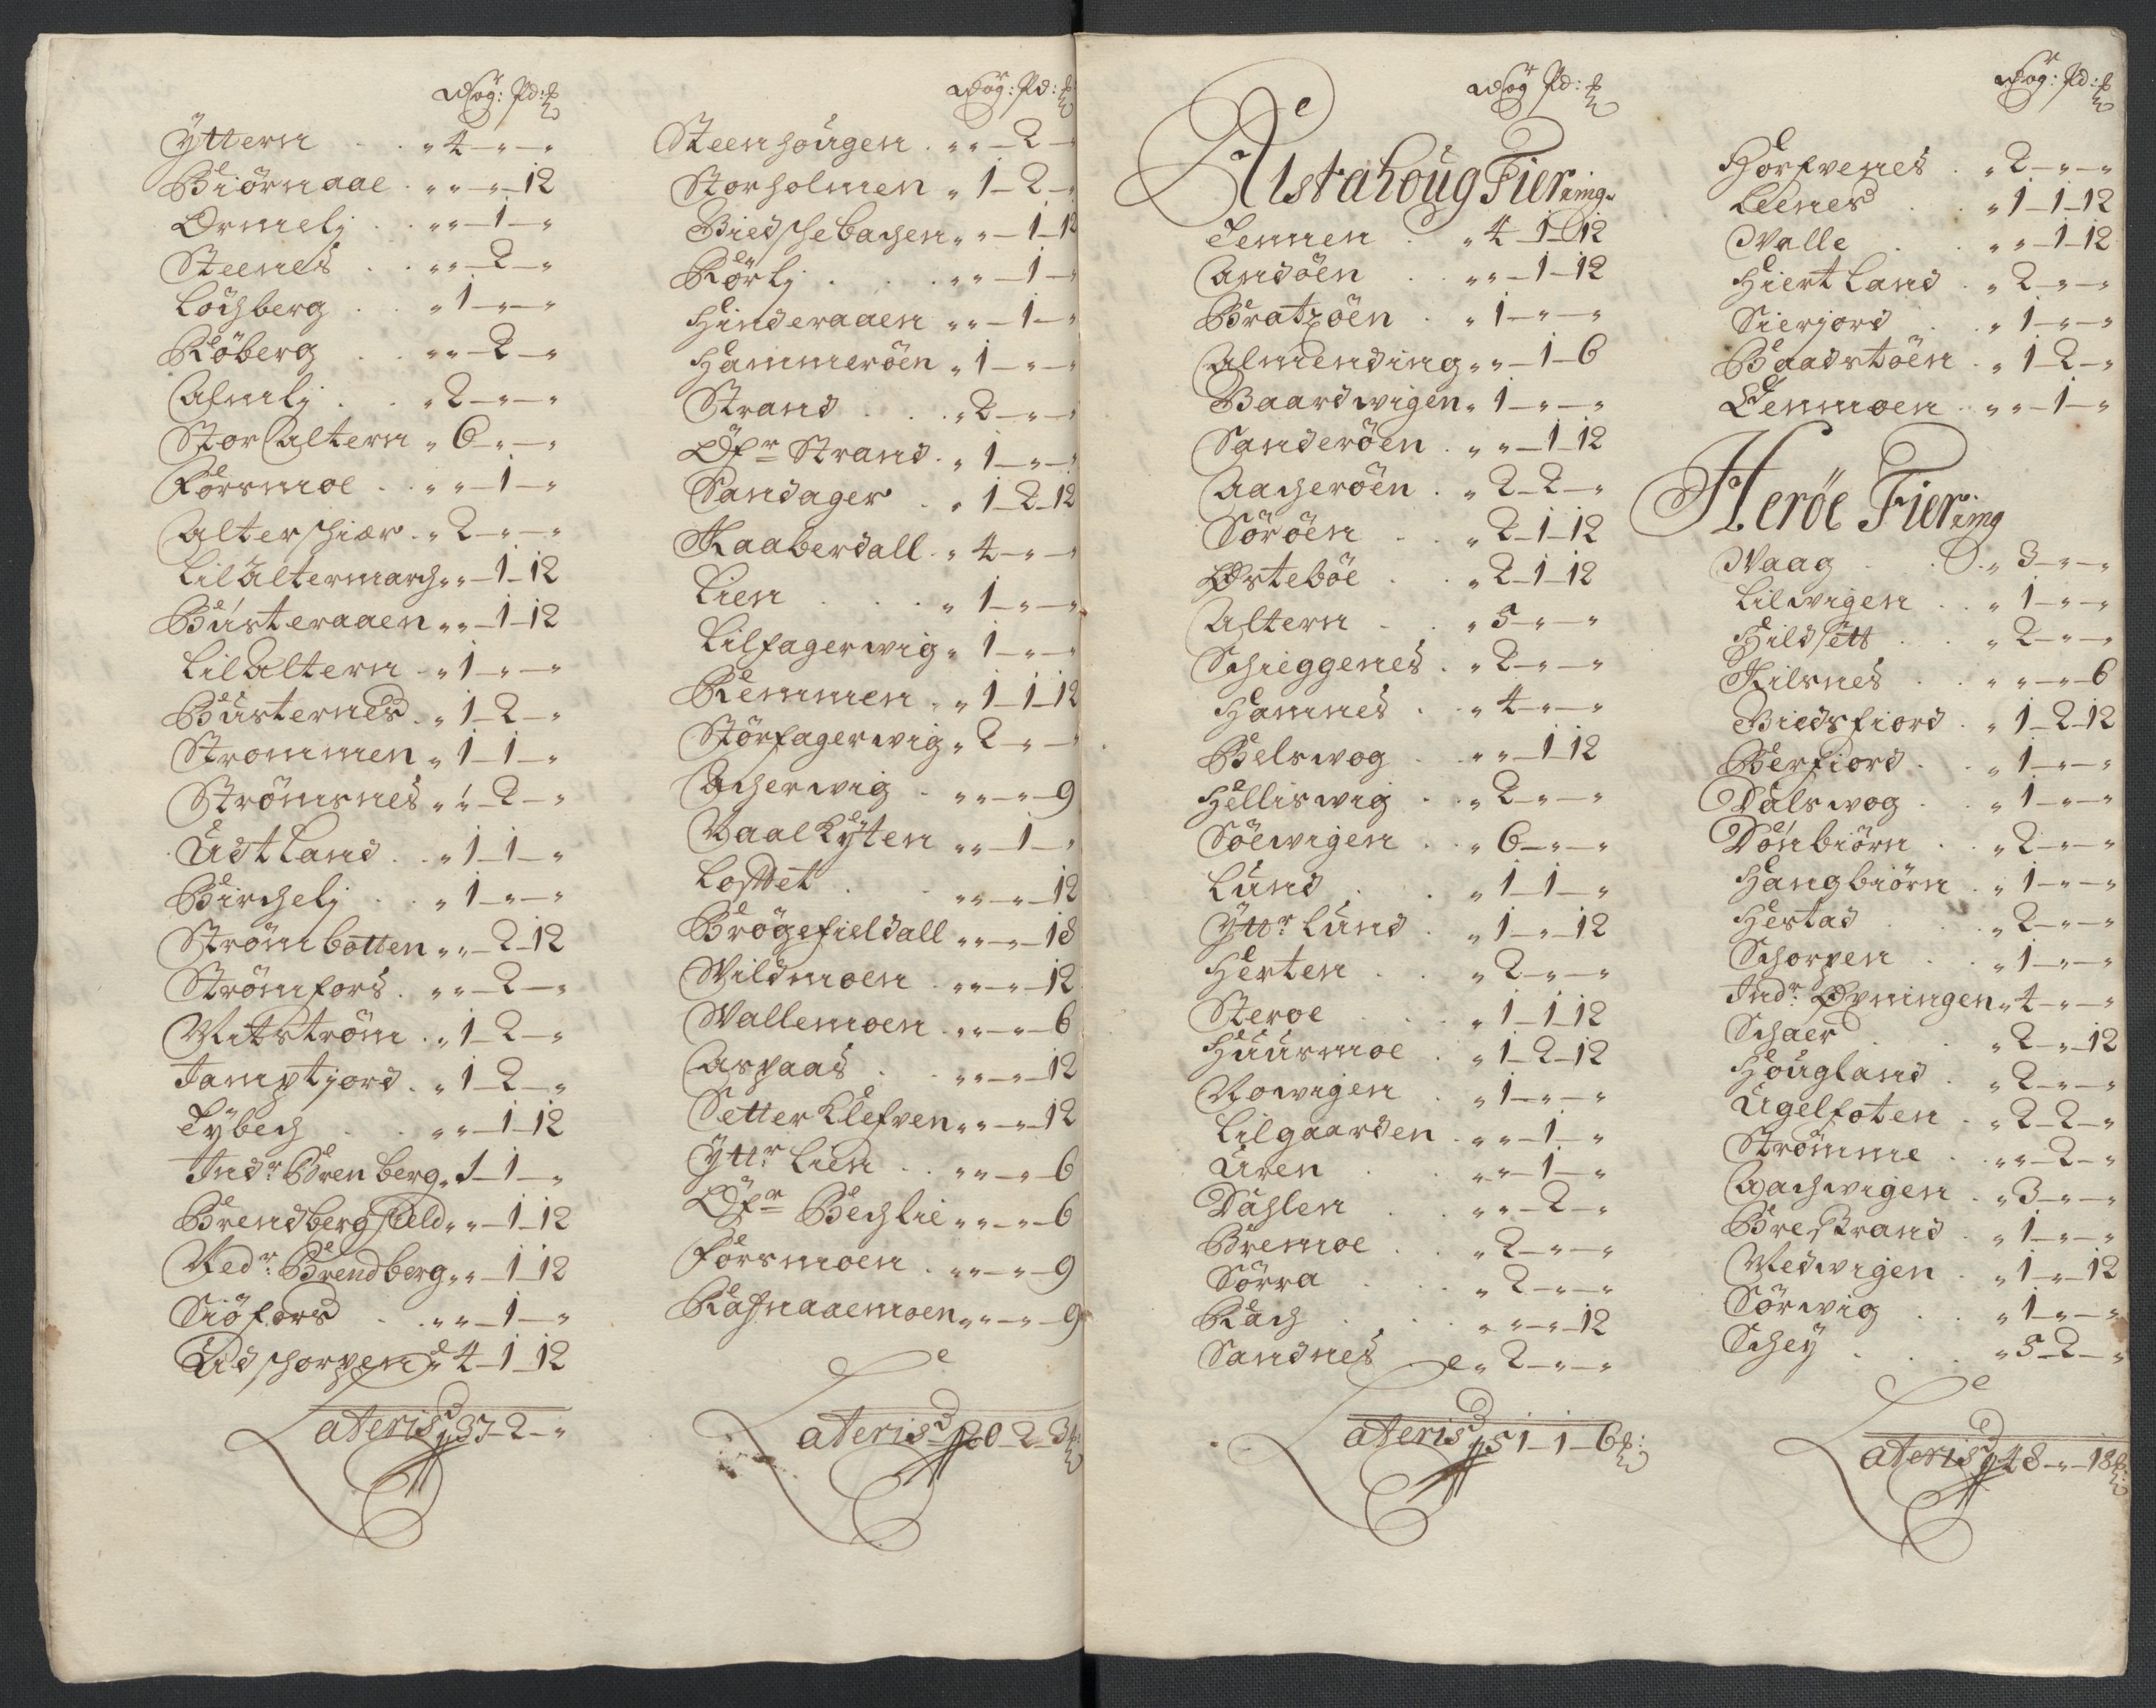 Wog: Pd: ℔
Ÿttern . . „ 4 – „ – „
Biörnaae . „ „ – „ – 12
Ormelj . . „ „ – 1 – „
Steenes . . „ „ – 2 – „
Lochberg . „ 1 – „ – „
Röberg . . „ „ – 2 – „
Almlj . . „ 2 – „ – „
Stor Altern „ 6 – „ – „
Forsmoe . . „ „ – 1 – „
Alterschiær . „ 2 – „ – „
Lil Altermarch „ „ – 1 – 12
Busteraaen „ „ – 1 – 12
Lil Altern . „ 1 – „ – „
Busternes . „ 1 – 2 – „
Strommen „ 1 – 1 – „
Strömsnes „ „ – 2 – „
Udtland . . „ 1 – 1 – „
Birchelj . . „ 1 – „ – „
Strömbotten „ „ – 2 – 12
Strömfors . „ „ – 2 – „
Mitström . „ 1 – 2 – „
Jamptjord . „ 1 – 2 – „
Tÿbech . . „ „ – 1 – 12
Indr Brenberg „ 1 – 1 – „
Brendbergfield „ „ – 1 – 12
Nedr: Brendberg „ „ – 1 – 12
Siöfors . . „ „ – 1 – „
Udschorpen „ 4 – 1 – 12
Lateris 37 – 2 – „
Wog: Pd: ℔
Steenhougen . „ „ – 2 – „
Storholmen „ 1 – 2 – „
Biedschebachen „ „ – 1 – 12
Rörlj . . . „ „ – 1 – „
Hinderaaen „ „ – 1 – „
Hammeröen „ 1 – „ – „
Strand . . . „ 2 – „ – „
Öfr Strand . „ 1 – „ – „
Sandager . „ 1 – 2 – 12
Kaaberdall . „ 4 – „ – „
Lien . . . „ 1 – „ – „
Lilfagerwig „ 1 – „ – „
Remmen . „ 1 – 1 – 12
Storfagerwig „ 2 – „ – „
Acherwig . „ „ – „ – 9
Vaalryten „ „ – 1 – „
Losset . . „ „ – „ – 12
Brögefieldall „ „ – „ – 18
Wildmoen . „ „ – „ – 12
Wallemoen . „ „ – „ – 6
Aspaas . . „ „ – „ – 12
Setter Klefven „ „ – „ – 12
Ÿttr Lien . . „ „ – „ – 6
Öfr Bechlie „ „ – „ – 6
Forsmoen . „ „ – „ – 9
Rafnaaemoen „ „ – „ – 9
Lateris 20 – 2 – 3 ℔
Wog Pd: ℔
Alstahoug Fiering
Tennen . „ 4 – 1 – 12
Andöen . „ „ – 1 – 12
Bratzöen . „ 1 – „ – „
Almending „ „ – 1 – 6
Baardwigen „ 1 – „ – „
Sanderöen . „ „ – 1 – 12
Aacheröen . „ 2 – 2 – „
Söröen . . „ 2 – 1 – 12
Østeböe . „ 2 – 1 – 12
Altern . . „ 5 – „ – „
Schieggenes . „ 2 – „ – „
Hamnes . . „ 4 – „ – „
Belswog . . „ „ – 1 – 12
Helliswig . . „ 2 – „ – „
Söewigen . . „ 6 – „ – „
Lund . . „ 1 – 1 – „
Ÿttr Lund . „ 1 – „ – 12
Herten . . „ 2 – „ – „
Steroe . . „ 1 – 1 – 12
Huusmoe . „ 1 – 2 – 12
Nowigen . „ 1 – „ – „
Lilgaarden . „ „ – 1 – „
Uren . . „ „ – 1 – „
Dahlen . . „ „ – 2 – „
Bremoe . . „ 2 – „ – „
Sörra . . „ 2 – „ – „
Rach . . . „ „ – „ – 12
Sandnes . „ 2 – „ – „
Lateris 51 – 1 – 6 ℔:
Wog: Pd: ℔
Horfvenes . „ 2 – „ – „
Leenes . . „ 1 – 1 – 12
Walle . . „ „ – 1 – 12
Hiertland . „ 2 – „ – „
Sierjord . „ 1 – „ – „
Baadstöen . „ 1 – 2 – „
Tenmoen . „ „ – 1 – „
Heröe Fiering
Waag . . „ 3 – „ – „
Lilwigen . . „ 1 – „ – „
Hildsett . . „ 2 – „ – „
Kilsnes . . „ „ – „ – 6
Biedsfiord . „ 1 – 2 – 12
Berfiord . . „ 1 – „ – „
Dalswog . . „ 1 – „ – „
Dönbiörn . . „ 2 – „ – „
Hangbiörn . „ 1 – „ – „
Hestad . . „ 2 – „ – „
Schorpen . . „ 1 – „ – „
Indr: Øpningen „ 4 – „ – „
Schaer . . „ 2 – „ – 12
Hougland . „ 2 – „ – „
Ugelfoten . „ 2 – 2 – „
Strömme . „ „ – 2 – „
Aachwigen . „ 3 – „ – „
Brestrand . „ 1 – „ – „
Nedwigen . „ 1 – „ – 12
Sörwig . . „ 1 – „ – „
Schey . . . „ 5 – 2 – „
Lateris 48 – „ – 18 ℔: